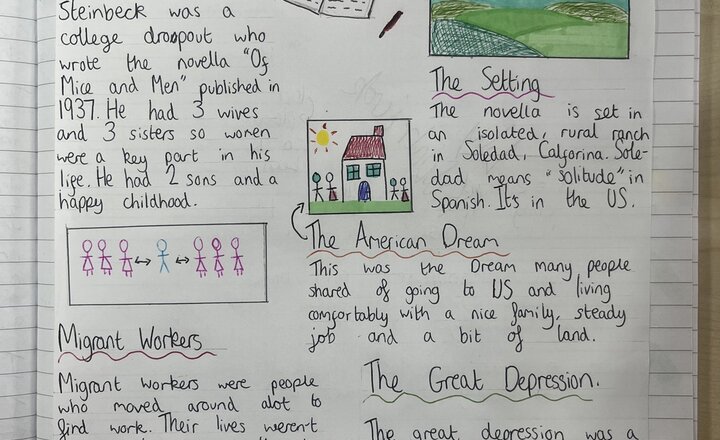 Steinbeck was a
college dropout who
wrote the novella "Of
Mice and Men" published in
1937. He had 3 wives
and 3 sisters so women
were a key part in his
life. He had 2 sons and a
happy childhood.
Migrant Workers
Migrant workers were people
who moved around alot to
find work. Their lives weren't
The Setting
The novella is set in
an isolated, rural ranch
in Soledad, Calforina. Sole-
dad means "solitude" in
Spanish. It's in the US.
The American Dream
This was the Dream many people
shared of going to US and living
comfortably with a nice family, steady
job and a bit of land.
The Great Depression.
The great depression was a